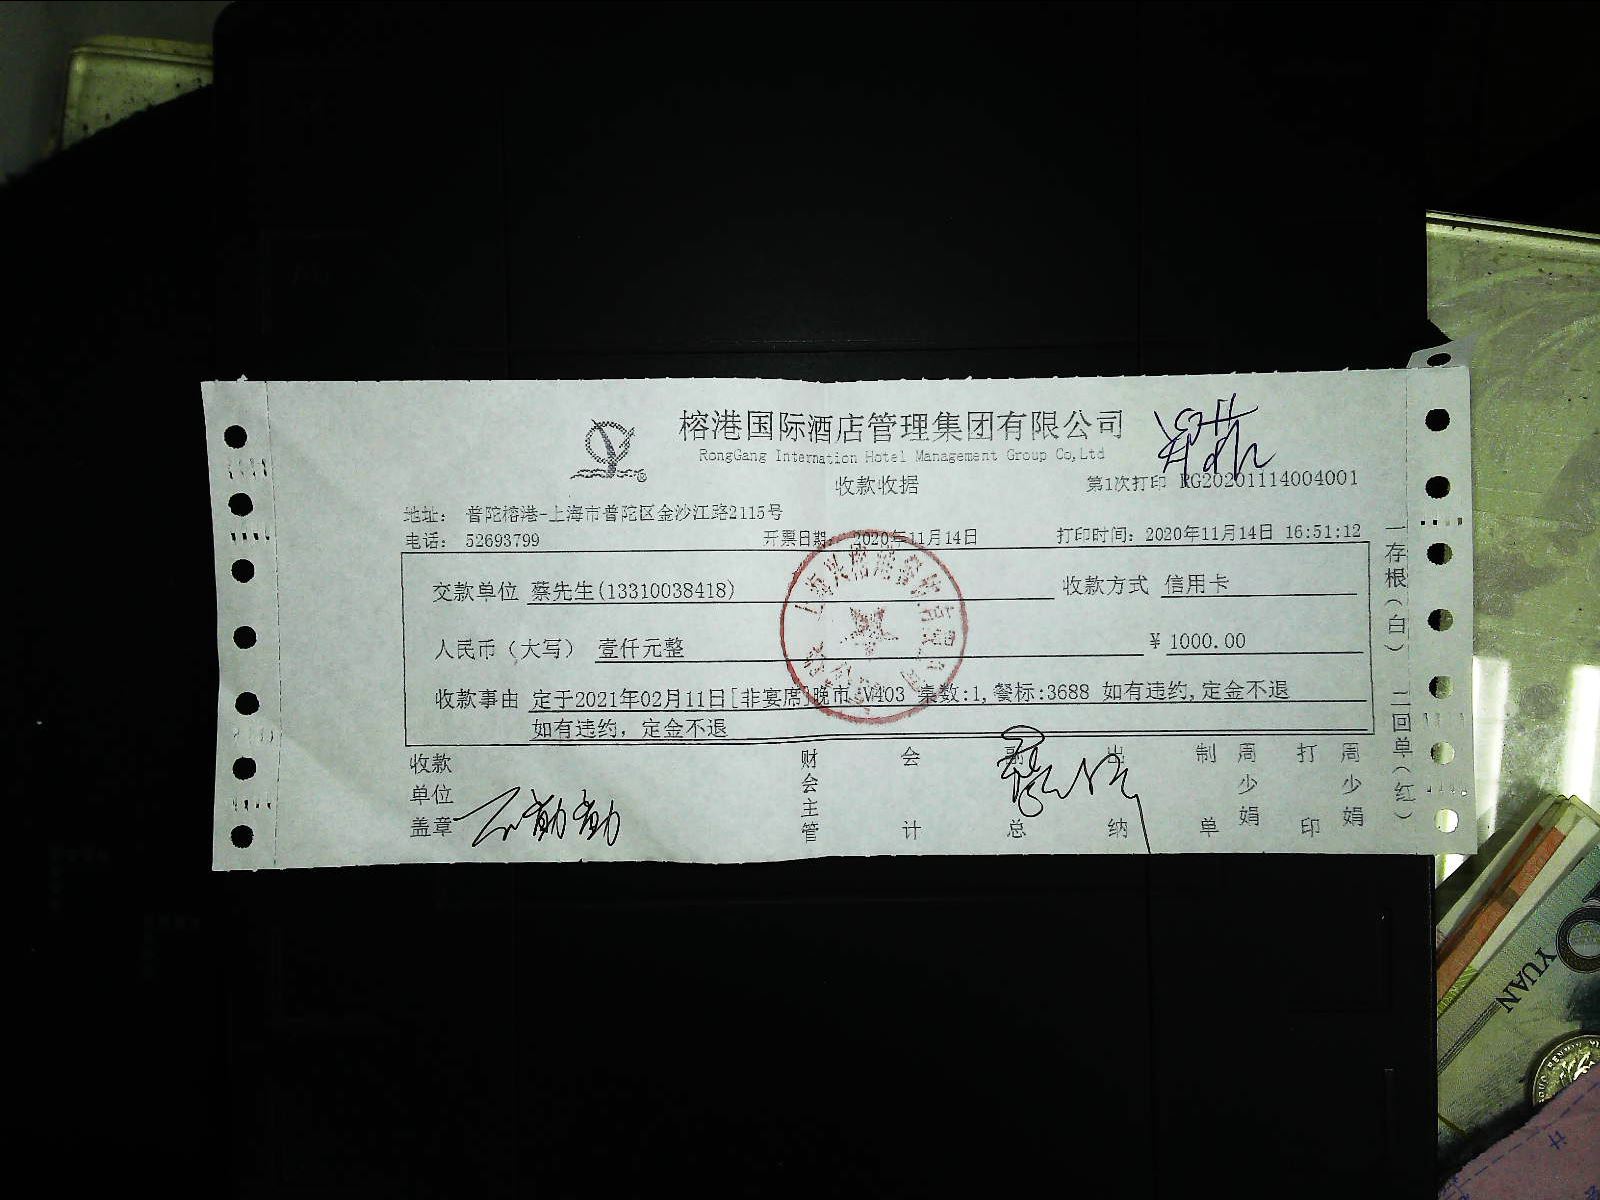 榕港国际酒店管理集团有限公司
RongGang Internation Hotel Management Group Co,Ltd
收款收据
第1次打印 RG20201114004001
地址： 普陀榕港-上海市普陀区金沙江路2115号
电话： 52693799 开票日期： 2020年11月14日 打印时间：2020年11月14日 16:51:12
交款单位 蔡先生(13310038418) 收款方式 信用卡
人民币（大写） 壹仟元整 ￥1000.00
收款事由 定于2021年02月11日[非宴席]晚市 V403 桌数:1,餐标:3688 如有违约,定金不退
如有违约，定金不退
收款单位盖章
财会主管
会计
副总
出纳
制单 周少娟
打印 周少娟
一存根(白) 二回单(红)
YUAN